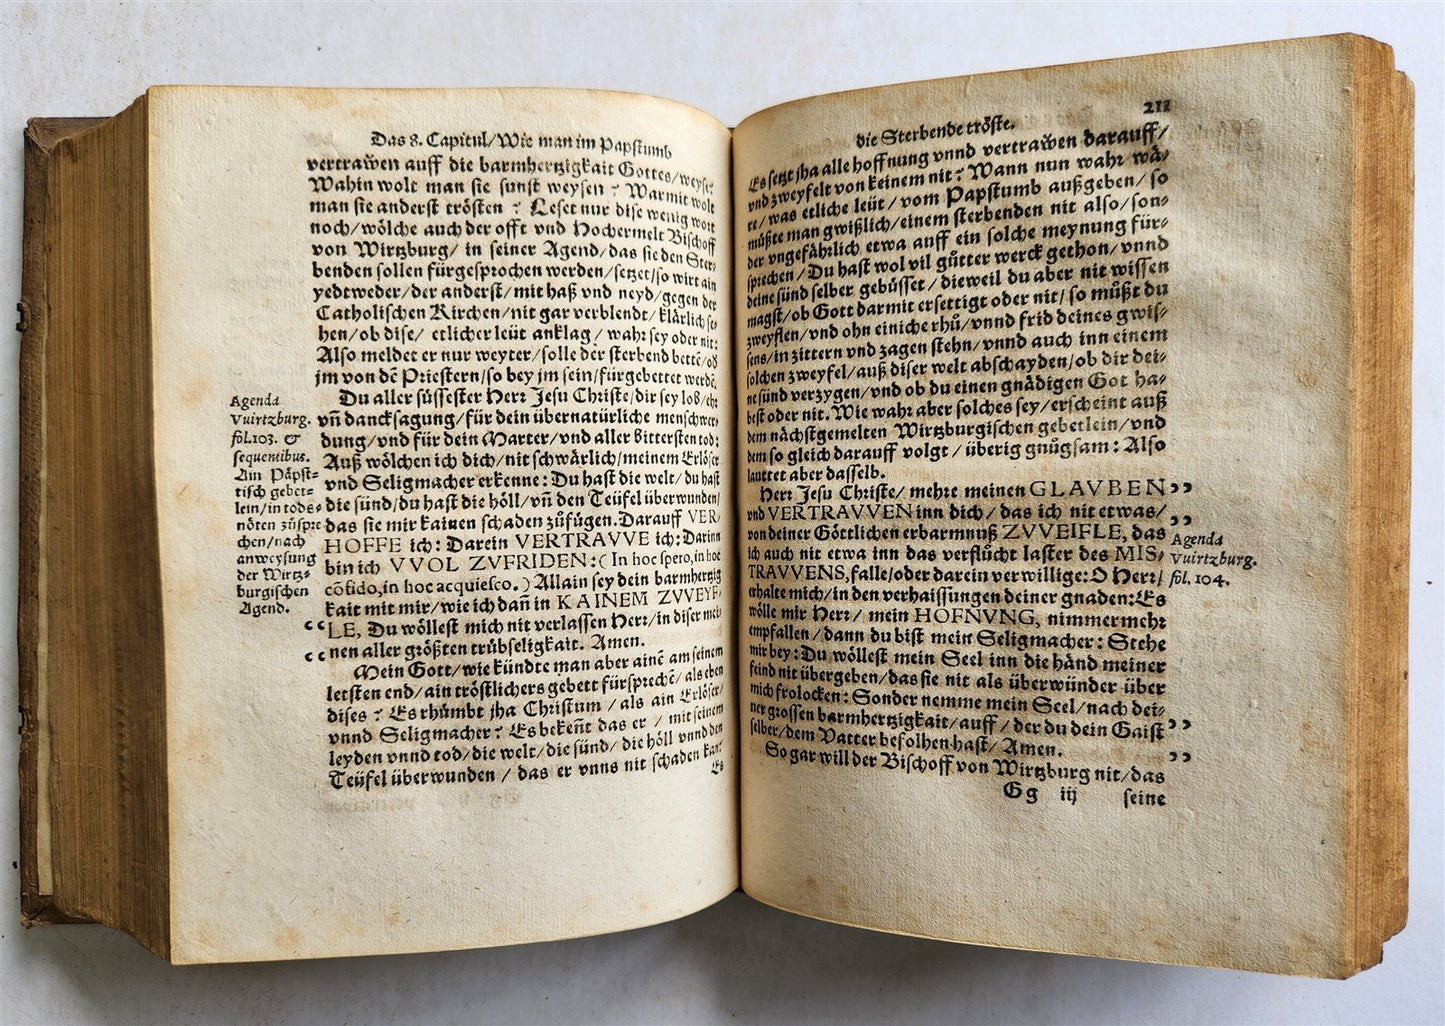 Das 8. Capitul/Wie man im Papstumb
vertrawen auff die barmhertzigkait Gottes/weyse?
Wahin wolt man sie sunst weysen? Warmit wolt
man sie anderst trösten? Leset nur dise wenig wort
noch/wölche auch der offt vnd Hochermelt Bischoff
von Wirtzburg/ in seiner Agend/das sie den Ster-
benden sollen fürgesprochen werden/setzet/so wirt ain
yedtweder/der anderst/mit haß vnd neyd/gegen der
Catholischen Kirchen/nit gar verblendt/klärlich se-
hen/ob dise/ etlicher leüt anklag/ wahr sey oder nit:
Also meldet er nur weyter/solle der sterbend bettē/oď
jm von dē Priestern/so bey jm sein/fürgebettet werdē.
Du aller süssester Herr Jesu Christe/dir sey lob/ehr
vñ dancksagung/für dein übernatürliche menschwer-
dung/vnd für dein Marter/vnd aller bittersten tod:
Auß wölchen ich dich/nit schwärlich/meinem Erlöser
vnd Seligmacher erkenne: Du hast die welt/du hast
die sünd/du hast die höll/vñ den Teüfel überwunden/
das sie mir kainen schaden zůfügen. Darauff VER-
HOFFE ich: Darein VERTRAVVE ich: Darinn
bin ich VVOL ZVFRIDEN: (In hoc spero, in hoc
cōfido, in hoc acquiesco.) Allain sey dein barmhertzig
kait mit mir/wie ich dañ in KAINEM ZVVEYF-
“ LE, Du wöllest mich nit verlassen Herr/in diser mei-
nen aller größten trübseligkait. Amen.
“ Mein Gott/wie kündte man aber ainē am seinem
letsten end/ain tröstlichers gebett fürsprechē/als eben
dises? Es rhůmbt jha Christum/als ain Erlöser/
vnnd Seligmacher? Es bekeñt das er/mit seinem
leyden vnnd tod/die welt/die sünd/die höll vnnd den
Teüfel überwunden/das er vnns nit schaden kan?
Es
Agenda
Vuirtzburg.
fol. 103. &
sequentibus.
Ain Päpst-
tisch gebet-
lein/in tods-
nöten zůspre
chen/nach
anweysung
der Wirtz-
burgischen
Agend.
211
die Sterbende tröste.
Es setzt jha alle hoffnung vnnd vertrawen darauff/
vnd zweyfelt von keinem nit? Wann nun wahr wä-
re/was etliche leüt/vom Papstumb außgeben/so
müßte man gwißlich/einem sterbenden nit also/son-
der vngefährlich etwa auff ein solche meynung für-
sprechen/Du hast wol vil gůtter werck gethon/vnnd
deine sünd selber gebüsset/dieweil du aber nit wissen
magst/ob Gott darmit ersettigt oder nit/so můßt du
zweyflen/vnd ohn einiche rhů/vnnd frid deines gwis-
sens/in zittern vnd zagen stehn/vnnd auch inn einem
solchen zweyfel/auß diser welt abschayden/ob dir dei-
ne sünd verzygen/vnd ob du einen gnädigen Got ha-
best oder nit. Wie wahr aber solches sey/erscheint auß
dem nächstgemelten Wirtzburgischen gebetlein/vnd
dem so gleich darauff volgt/überig gnůgsam: Also
lauttet aber dasselb.
Herr Jesu Christe/ mehre meinen GLAVBEN ”
vnd VERTRAVVEN inn dich/das ich nit etwas/
von deiner Göttlichen erbarmnuß ZVVEIFLE, das ”
ich auch nit etwa inn das verflůcht laster des MIS-
TRAVVENS, falle/oder darein verwillige: O Herr/
erhalte mich/in den verhaissungen deiner gnaden: Es
wölle mir Herr/ mein HOFNVNG, nimmermehr
empfallen/dann du bist mein Seligmacher: Stehe
mir bey: Du wöllest mein Seel inn die händ meiner
feind nit übergeben/das sie nit als überwünder über
mich frolocken: Sonder nemme mein Seel/nach dei-
ner grossen barmhertzigkait/auff/der du dein Gaist ”
selber/dem Vatter befolhen hast/Amen.
So gar will der Bischoff von Wirtzburg nit/das ”
Gg iij seine
Agenda
Vuirtzburg.
fol. 104.